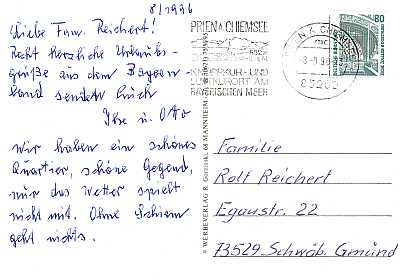 8/1996
Liebe Fam. Reichert!
Recht herzliche Urlaubs-
grüße aus dem Bayern
land sendet Euch
Ihr u. Otto
Wir haben ein schönes
Quartier, schöne Gegend,
nur das Wetter spielt
nicht mit. Ohne Schirm
geht nichts.
PRIEN A CHIEMSEE
KNEIPPKUR- UND
LUFTKURORT AM
BAYERISCHEN MEER
PRIEN A CHIEMSEE
mc
83209
80
© WERBEVERLAG R. MANNHEIM
Familie
Rolf Reichert
Egaustr. 22
73529 Schwäb. Gmünd